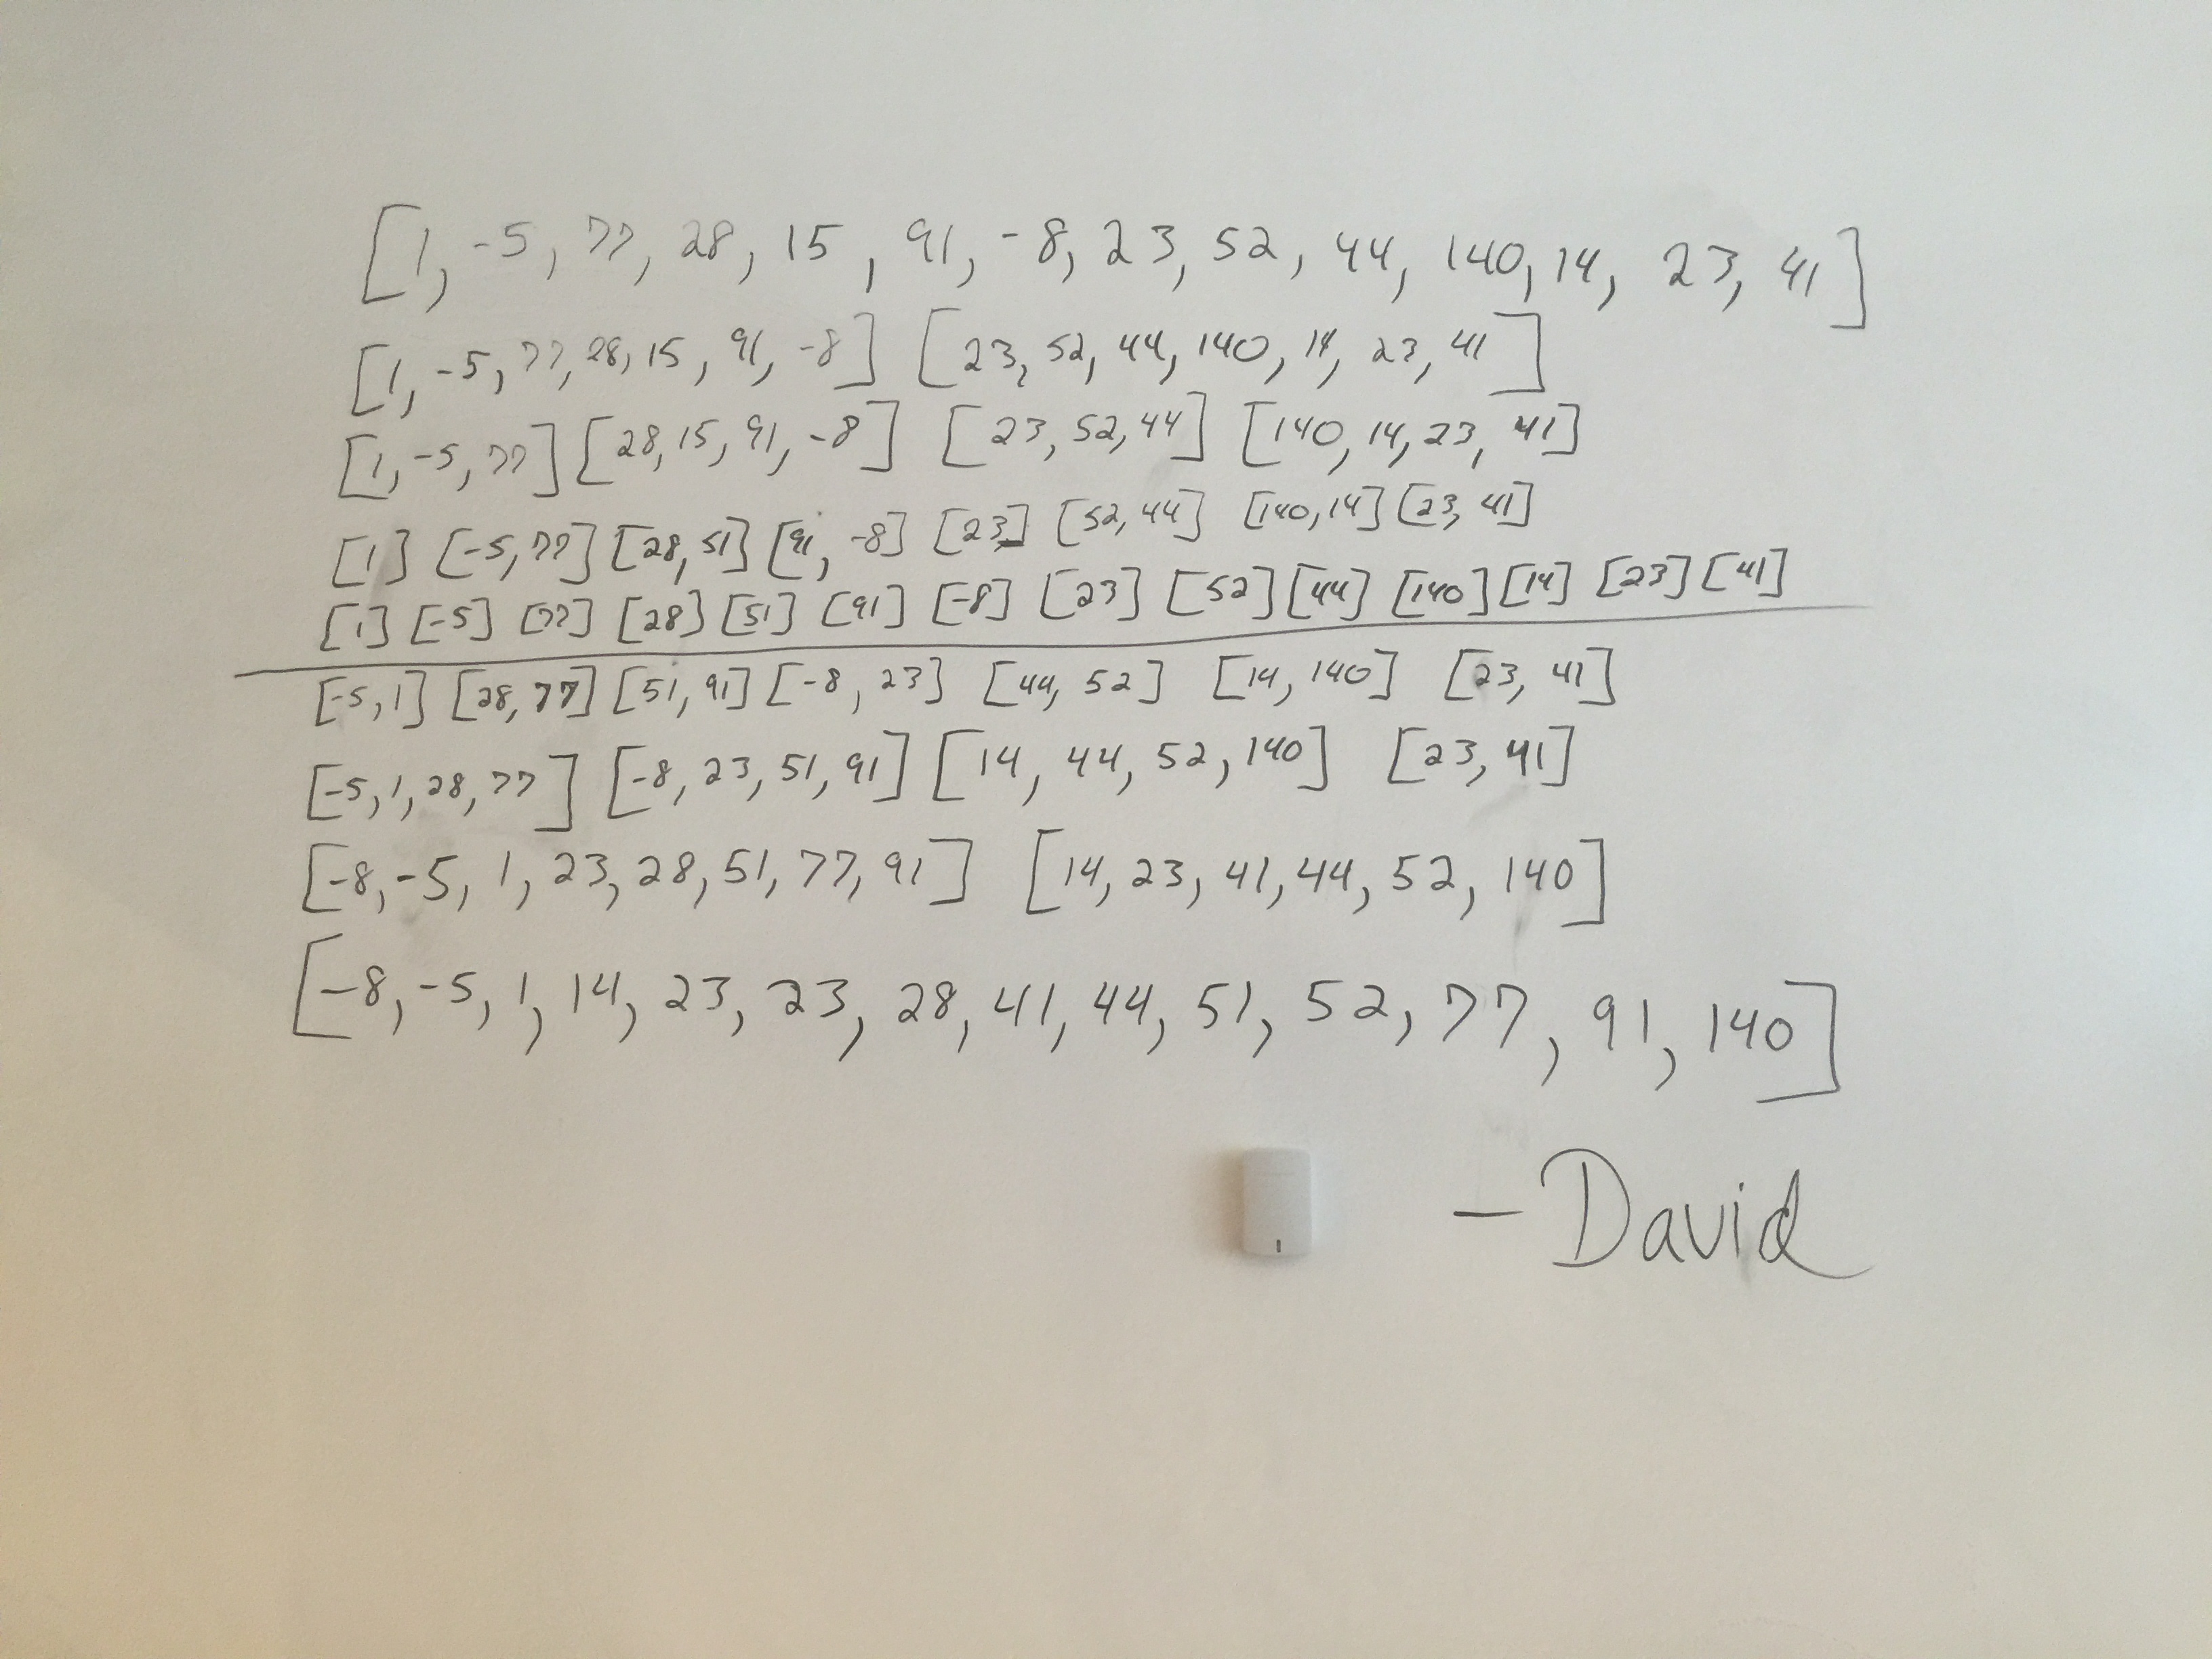 [1, -5, 77, 28, 15, 91, -8, 23, 52, 44, 140, 14, 23, 41]
[1, -5, 77, 28, 15, 91, -8] [23, 52, 44, 140, 14, 23, 41]
[1, -5, 77] [28, 15, 91, -8] [23, 52, 44] [140, 14, 23, 41]
[1] [-5, 77] [28, 51] [91, -8] [23] [52, 44] [140, 14] [23, 41]
[1] [-5] [77] [28] [51] [91] [-8] [23] [52] [44] [140] [14] [23] [41]
[-5, 1] [28, 77] [51, 91] [-8, 23] [44, 52] [14, 140] [23, 41]
[-5, 1, 28, 77] [-8, 23, 51, 91] [14, 44, 52, 140] [23, 41]
[-8, -5, 1, 23, 28, 51, 77, 91] [14, 23, 41, 44, 52, 140]
[-8, -5, 1, 14, 23, 23, 28, 41, 44, 51, 52, 77, 91, 140]
- David